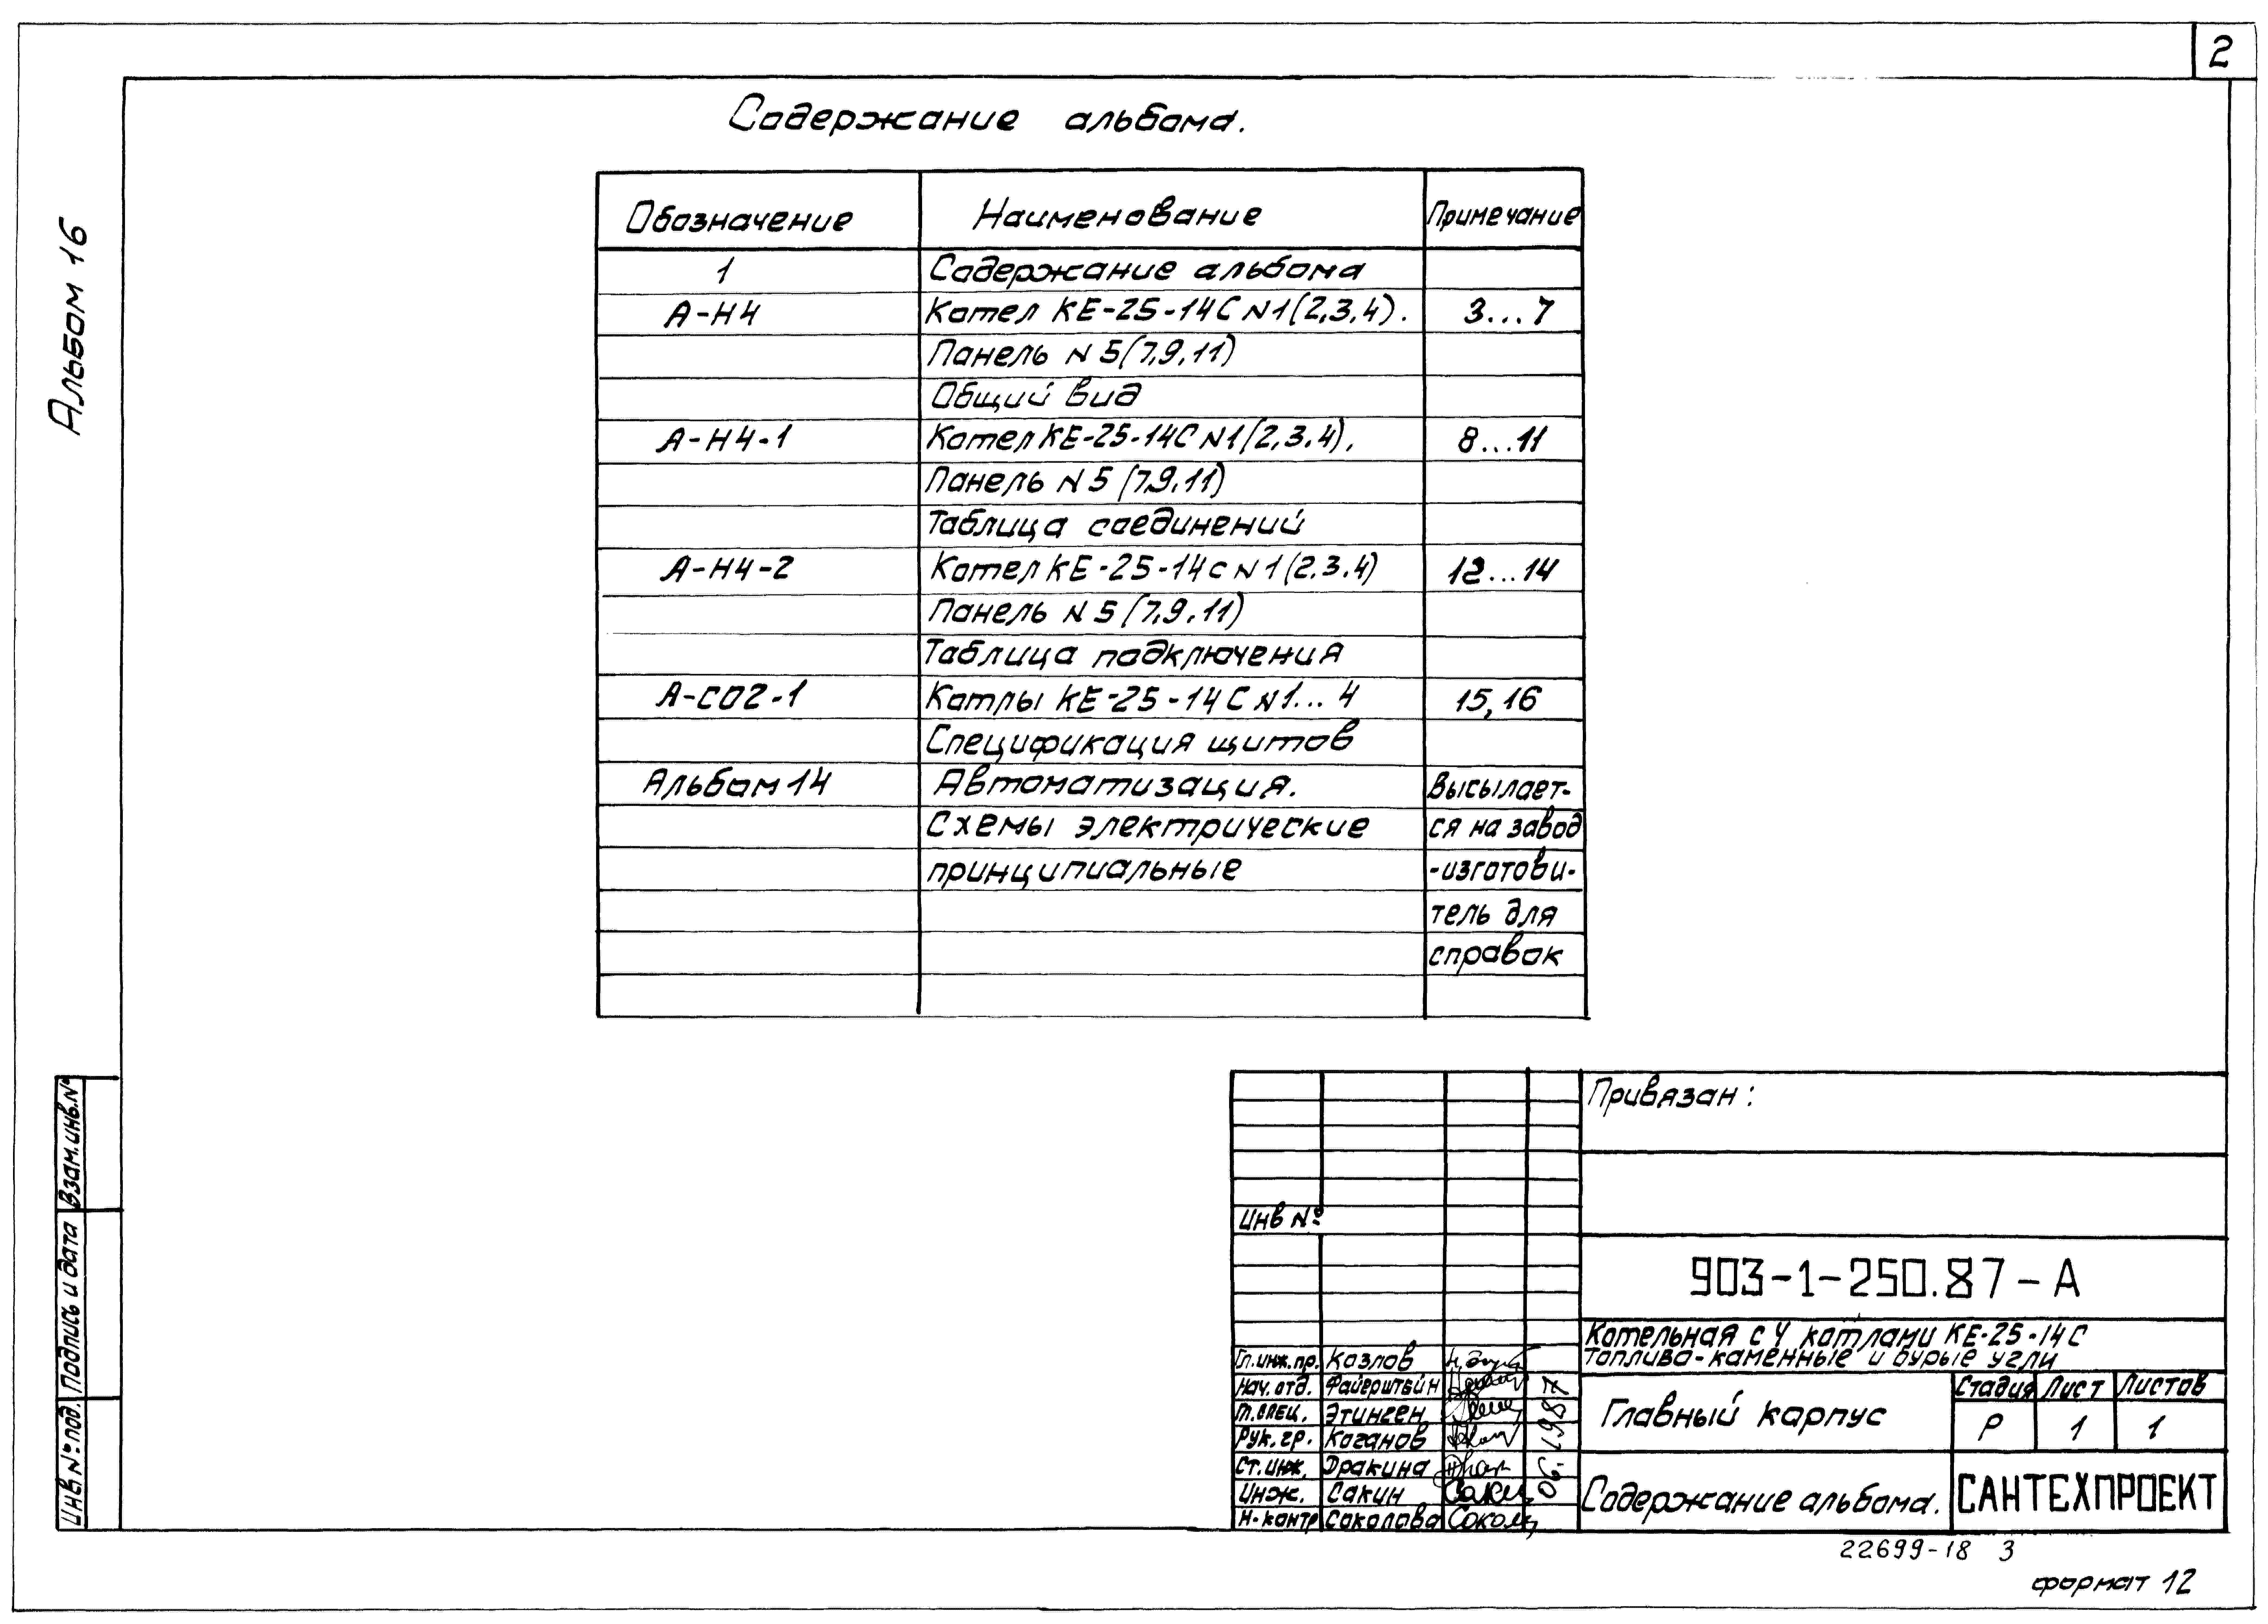 2
Альбом 16
Содержание альбома.
Обозначение Наименование Примечание
1 Содержание альбома
А-Н4 Котел КЕ-25-14С N1(2,3,4). 3...7
Панель N 5(7,9,11)
Общий вид
А-Н4-1 Котел КЕ-25-14С N1(2,3,4), 8...11
Панель N 5 (7,9,11)
Таблица соединений
А-Н4-2 Котел КЕ-25-14С N1(2.3.4) 12...14
Панель N 5 (7,9,11)
Таблица подключения
А-СО2-1 Котлы КЕ-25-14С N1...4 15,16
Спецификация щитов
Альбом 14 Автоматизация. Высылает-
Схемы электрические ся на завод
принципиальные -изготови-
тель для
справок
Привязан:
Инв №
903-1-250.87-А
Котельная с 4 котлами КЕ-25-14С
топливо-каменные и бурые угли
Гл.инж.пр. Козлов
Нач. отд. Файерштейн
Гл.спец. Этинген
Рук. гр. Коганов
Ст.инж. Дракина
Инж. Сакин Сакин
Н.контр Соколова Сокол
06.1987
Главный корпус
Стадия Лист Листов
Р 1 1
Содержание альбома.
САНТЕХПРОЕКТ
Взам.инв.N°
Подпись и дата
Инв № под.
22699-18 3
формат 12